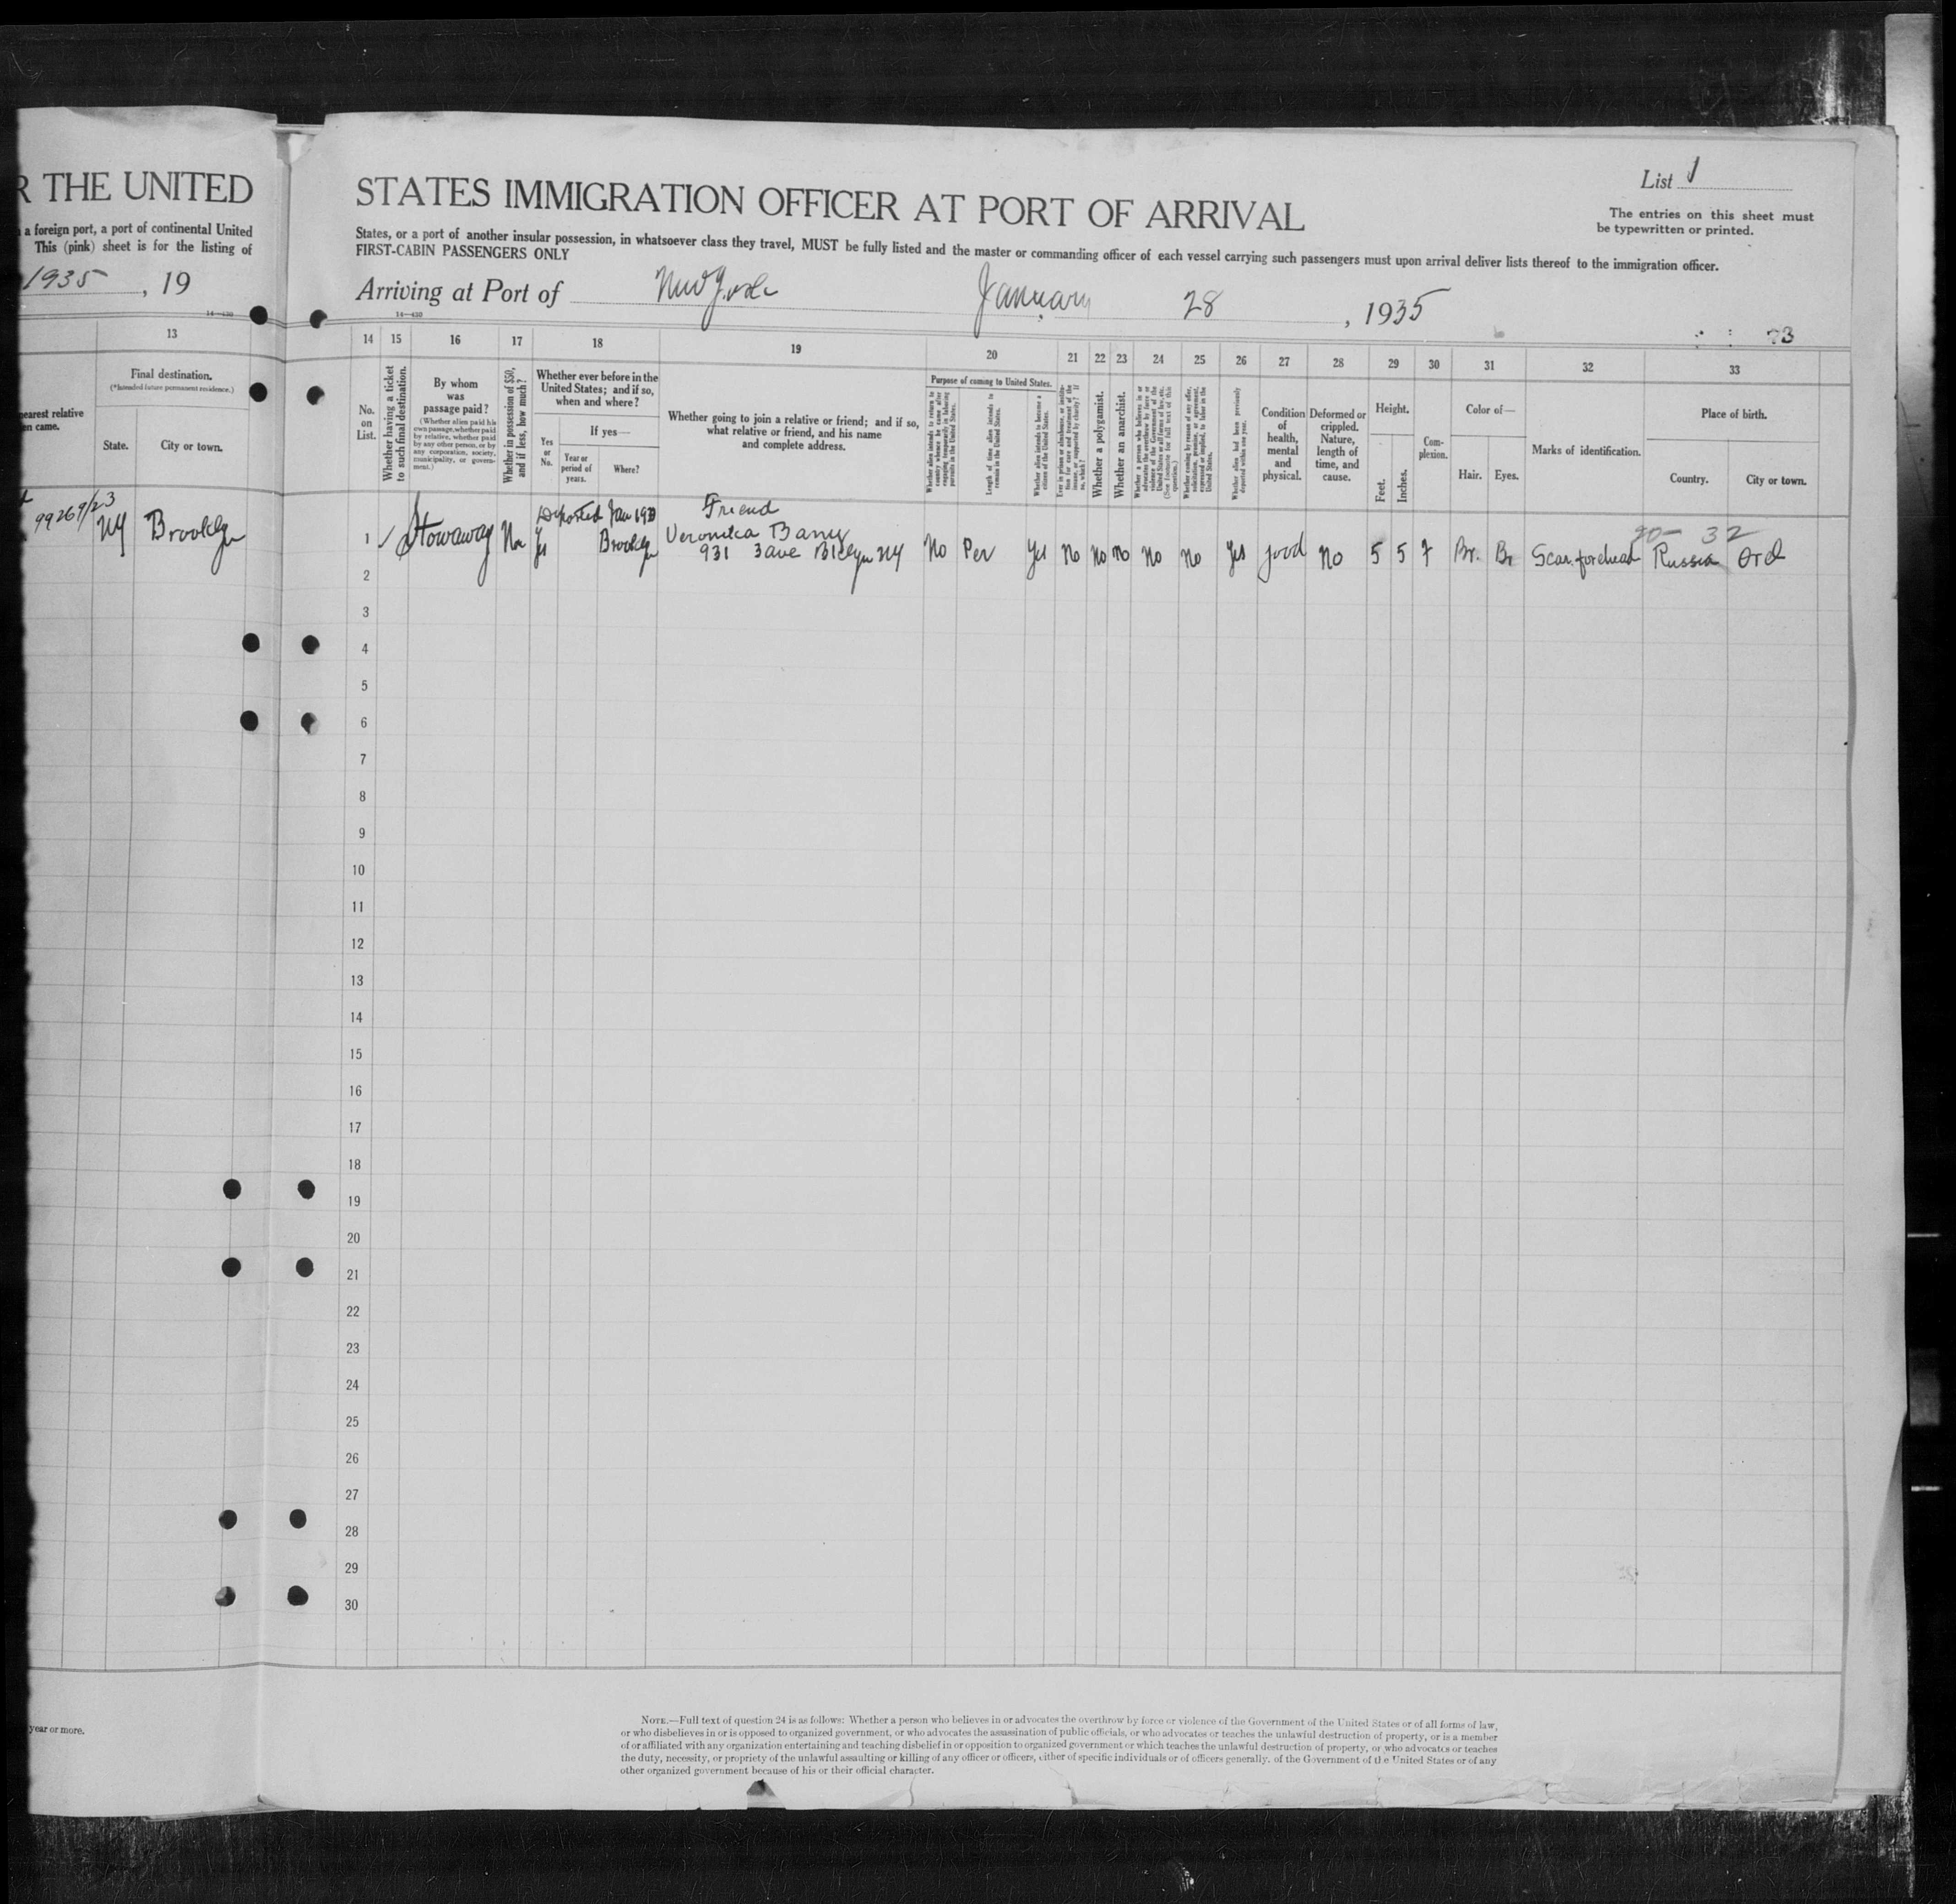 R THE UNITED
a foreign port, a port of continental United
This (pink) sheet is for the listing of
1935, 19
14—430
13
Final destination.
(*Intended future permanent residence.)
nearest relative
en came.
State.
City or town.
99269/23
NY
Brooklyn
year or more.
STATES IMMIGRATION OFFICER AT PORT OF ARRIVAL
List 1
The entries on this sheet must
be typewritten or printed.
States, or a port of another insular possession, in whatsoever class they travel, MUST be fully listed and the master or commanding officer of each vessel carrying such passengers must upon arrival deliver lists thereof to the immigration officer.
FIRST-CABIN PASSENGERS ONLY
Arriving at Port of New York January 28, 1935
14—430
14 15 16 17 18 19 20 21 22 23 24 25 26 27 28 29 30 31 32 33
No.
on
List.
Whether having a ticket
to such final destination.
By whom
was
passage paid?
(Whether alien paid his
own passage, whether paid
by relative, whether paid
by any other person, or by
any corporation, society,
municipality, or govern-
ment.)
Whether in possession of $50,
and if less, how much?
Whether ever before in the
United States; and if so,
when and where?
Yes
or
No.
If yes—
Year or
period of
years.
Where?
Whether going to join a relative or friend; and if so,
what relative or friend, and his name
and complete address.
Purpose of coming to United States.
Whether alien intends to return to
country whence he came after
engaging temporarily in laboring
pursuits in the United States.
Length of time alien intends to
remain in the United States.
Whether alien intends to become a
citizen of the United States.
Ever in prison or almshouse, or institu-
tion for care and treatment of the
insane, or supported by charity? If
so, which?
Whether a polygamist.
Whether an anarchist.
Whether a person who believes in or
advocates the overthrow by force or
violence of the Government of the
United States or all forms of law, etc.
(See footnote for full text of this
question.)
Whether coming by reason of any offer,
solicitation, promise, or agreement,
expressed or implied, to labor in the
United States.
Whether alien had been previously
deported within one year.
Condition
of
health,
mental
and
physical.
Deformed or
crippled.
Nature,
length of
time, and
cause.
Height.
Feet.
Inches.
Com-
plexion.
Color of—
Hair.
Eyes.
Marks of identification.
Place of birth.
Country.
City or town.
Deported Jan
Friend
1 Stowaway No Yes Brooklyn Veronica No Per Yes No No No No No Yes good No 5 5 Br. Br Scar forehead Russia
931 3 ave Bklyn NY
2
3
4
5
6
7
8
9
10
11
12
13
14
15
16
17
18
19
20
21
22
23
24
25
26
27
28
29
30
NOTE.—Full text of question 24 is as follows: Whether a person who believes in or advocates the overthrow by force or violence of the Government of the United States or of all forms of law,
or who disbelieves in or is opposed to organized government, or who advocates the assassination of public officials, or who advocates or teaches the unlawful destruction of property, or is a member
of or affiliated with any organization entertaining and teaching disbelief in or opposition to organized government or which teaches the unlawful destruction of property, or who advocates or teaches
the duty, necessity, or propriety of the unlawful assaulting or killing of any officer or officers, either of specific individuals or of officers generally, of the Government of the United States or of any
other organized government because of his or their official character.